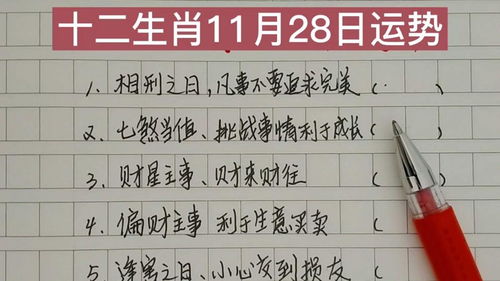 十二生肖11月28日运势
1、相刑之日,凡事不要追求完美(   )
2、七煞当值、挑战事情利于成长(   )
3、财星主事、财来财往   (   )
4、偏财主事 利于生意买卖   (   )
5、净害之日、小心交到损友   (